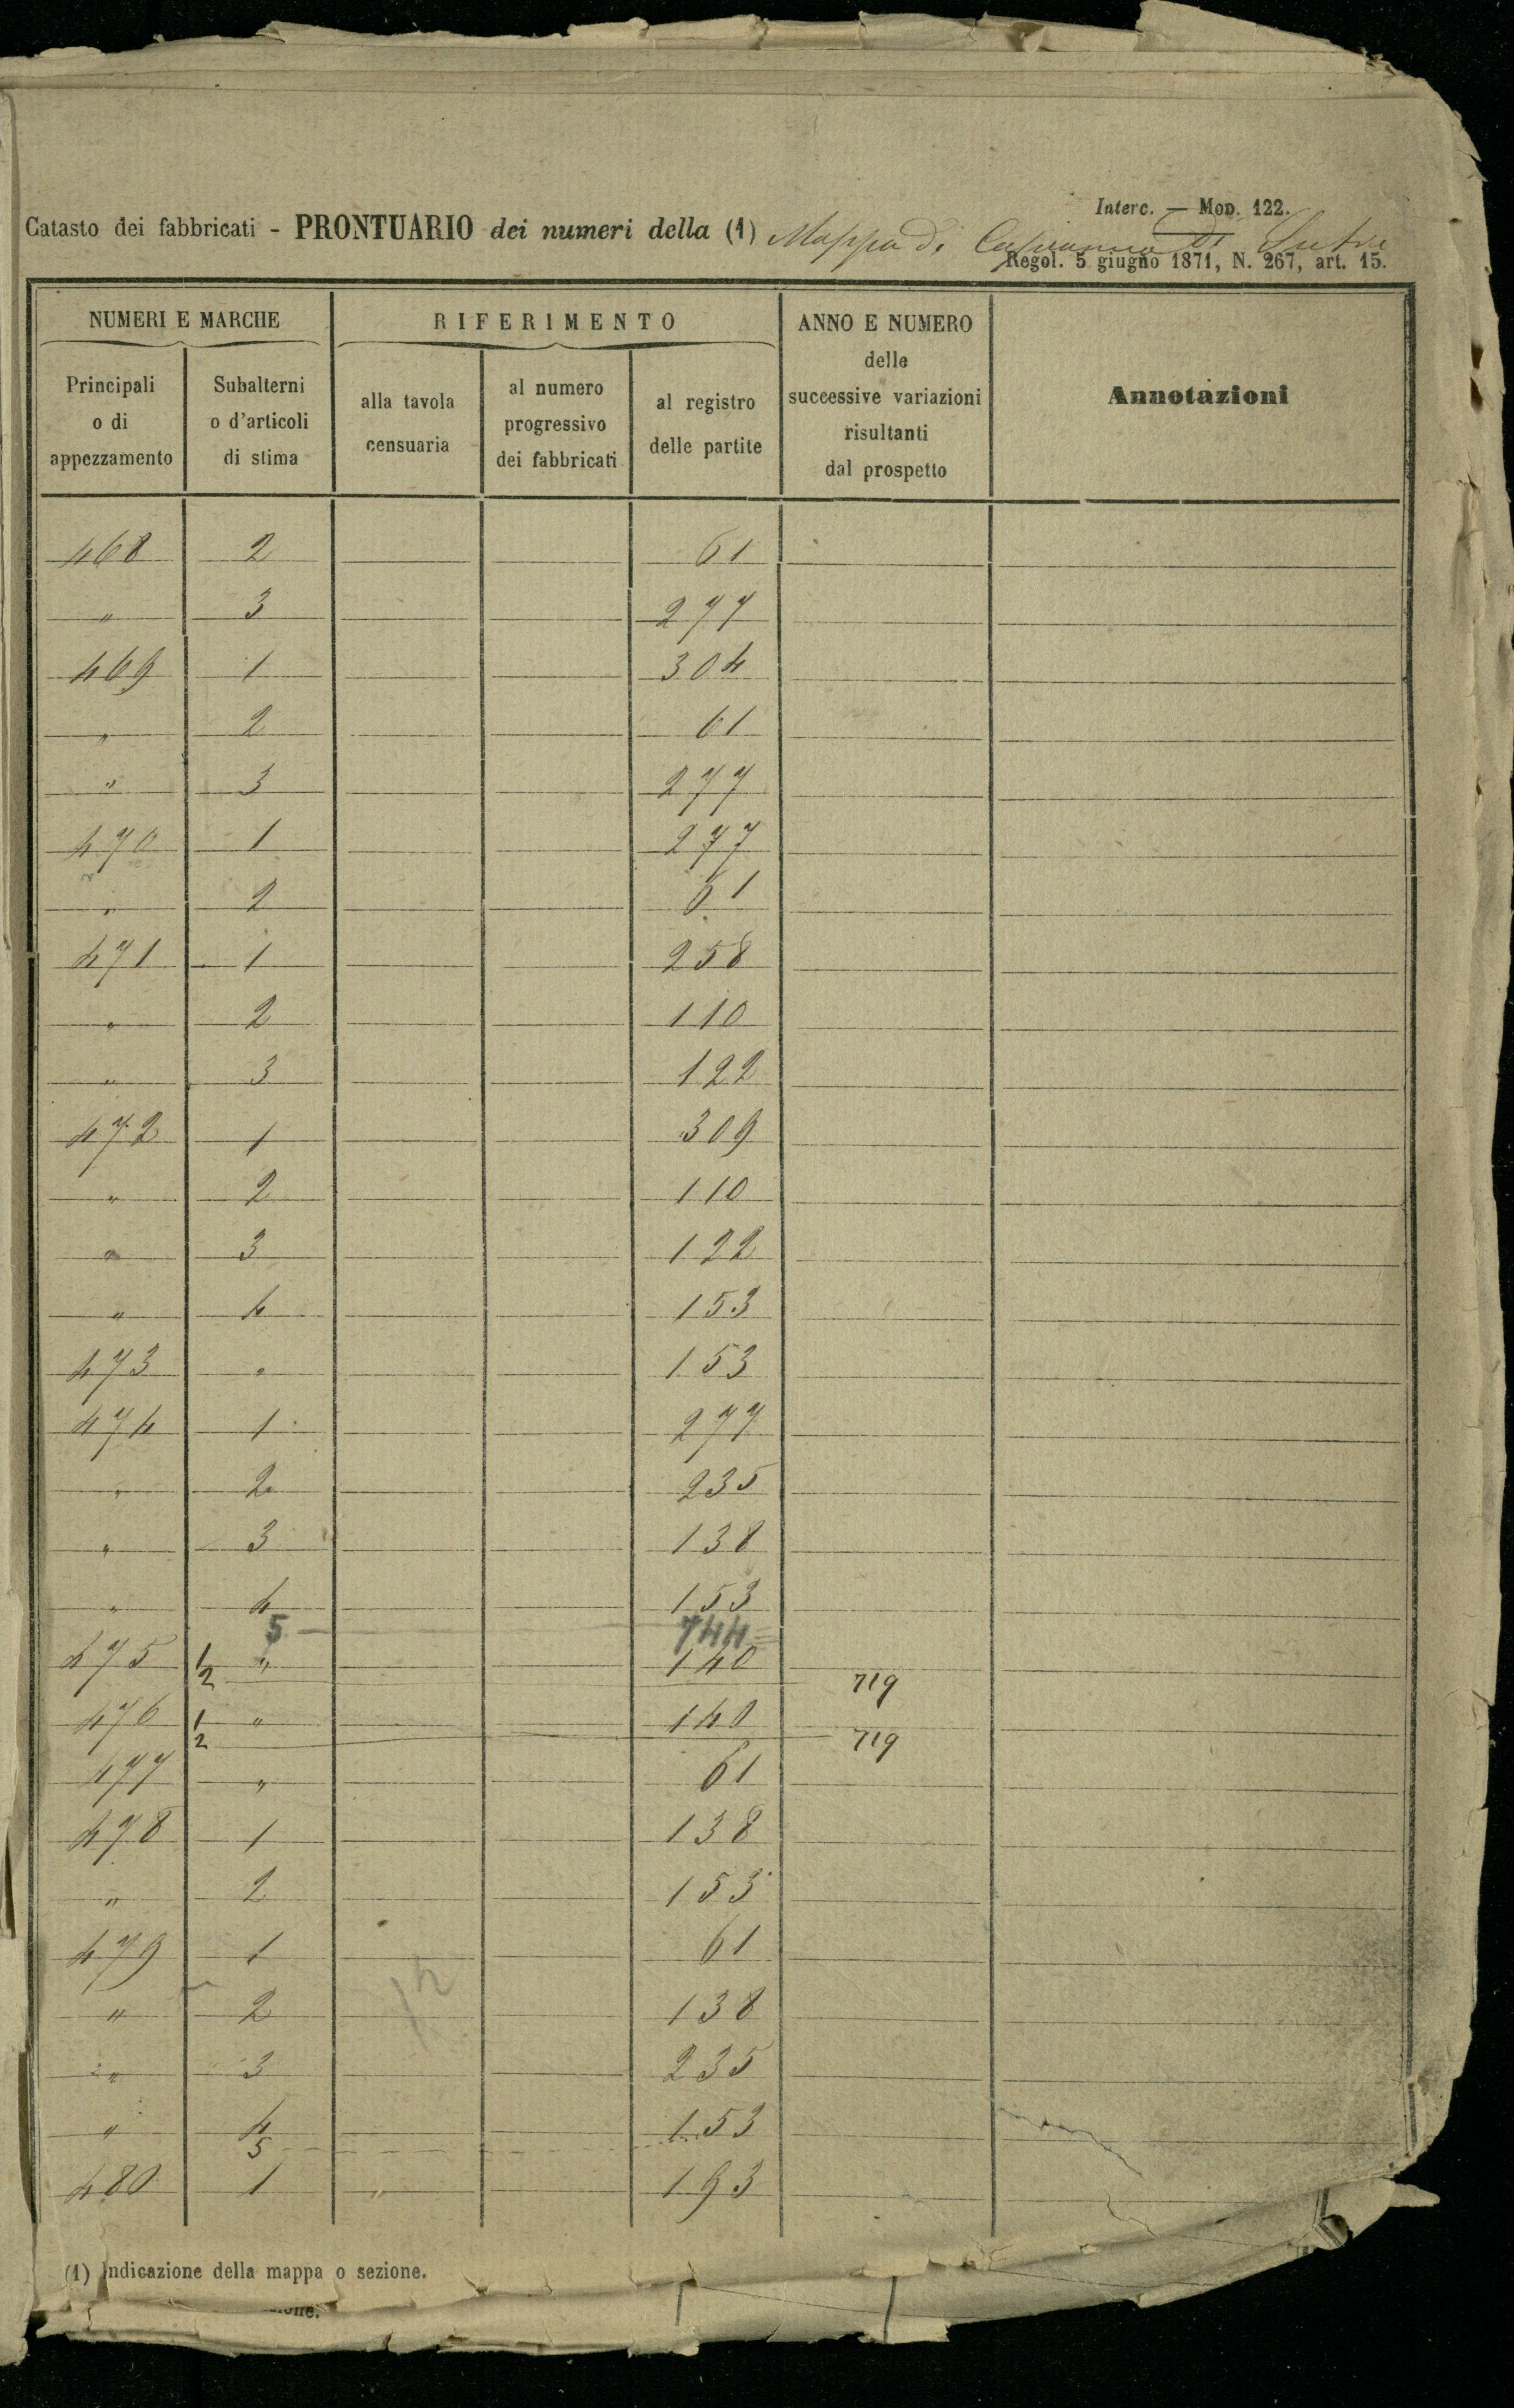 Interc. — Mod. 122.
Catasto dei fabbricati - PRONTUARIO dei numeri della (1) Mappa di Capranica di Sutri
Regol. 5 giugno 1871, N. 267, art. 15.
NUMERI E MARCHE RIFERIMENTO ANNO E NUMERO delle successive variazioni risultanti dal prospetto Annotazioni
Principali o di appezzamento Subalterni o d'articoli di stima alla tavola censuaria al numero progressivo dei fabbricati al registro delle partite
468 2 61
" 3 277
469 1 304
" 2 61
" 3 277
470 1 277
" 2 61
471 1 258
" 2 110
" 3 122
472 1 309
" 2 110
" 3 122
" 4 153
473 " 153
474 1 277
" 2 235
" 3 138
" 4 153
5 744
475 1 " 140
2 719
476 1 " 140
2 719
477 " 61
478 1 138
" 2 153
479 1 61
" 2 138
" 3 235
" 4 153
5
480 1 " 193
(1) Indicazione della mappa o sezione.